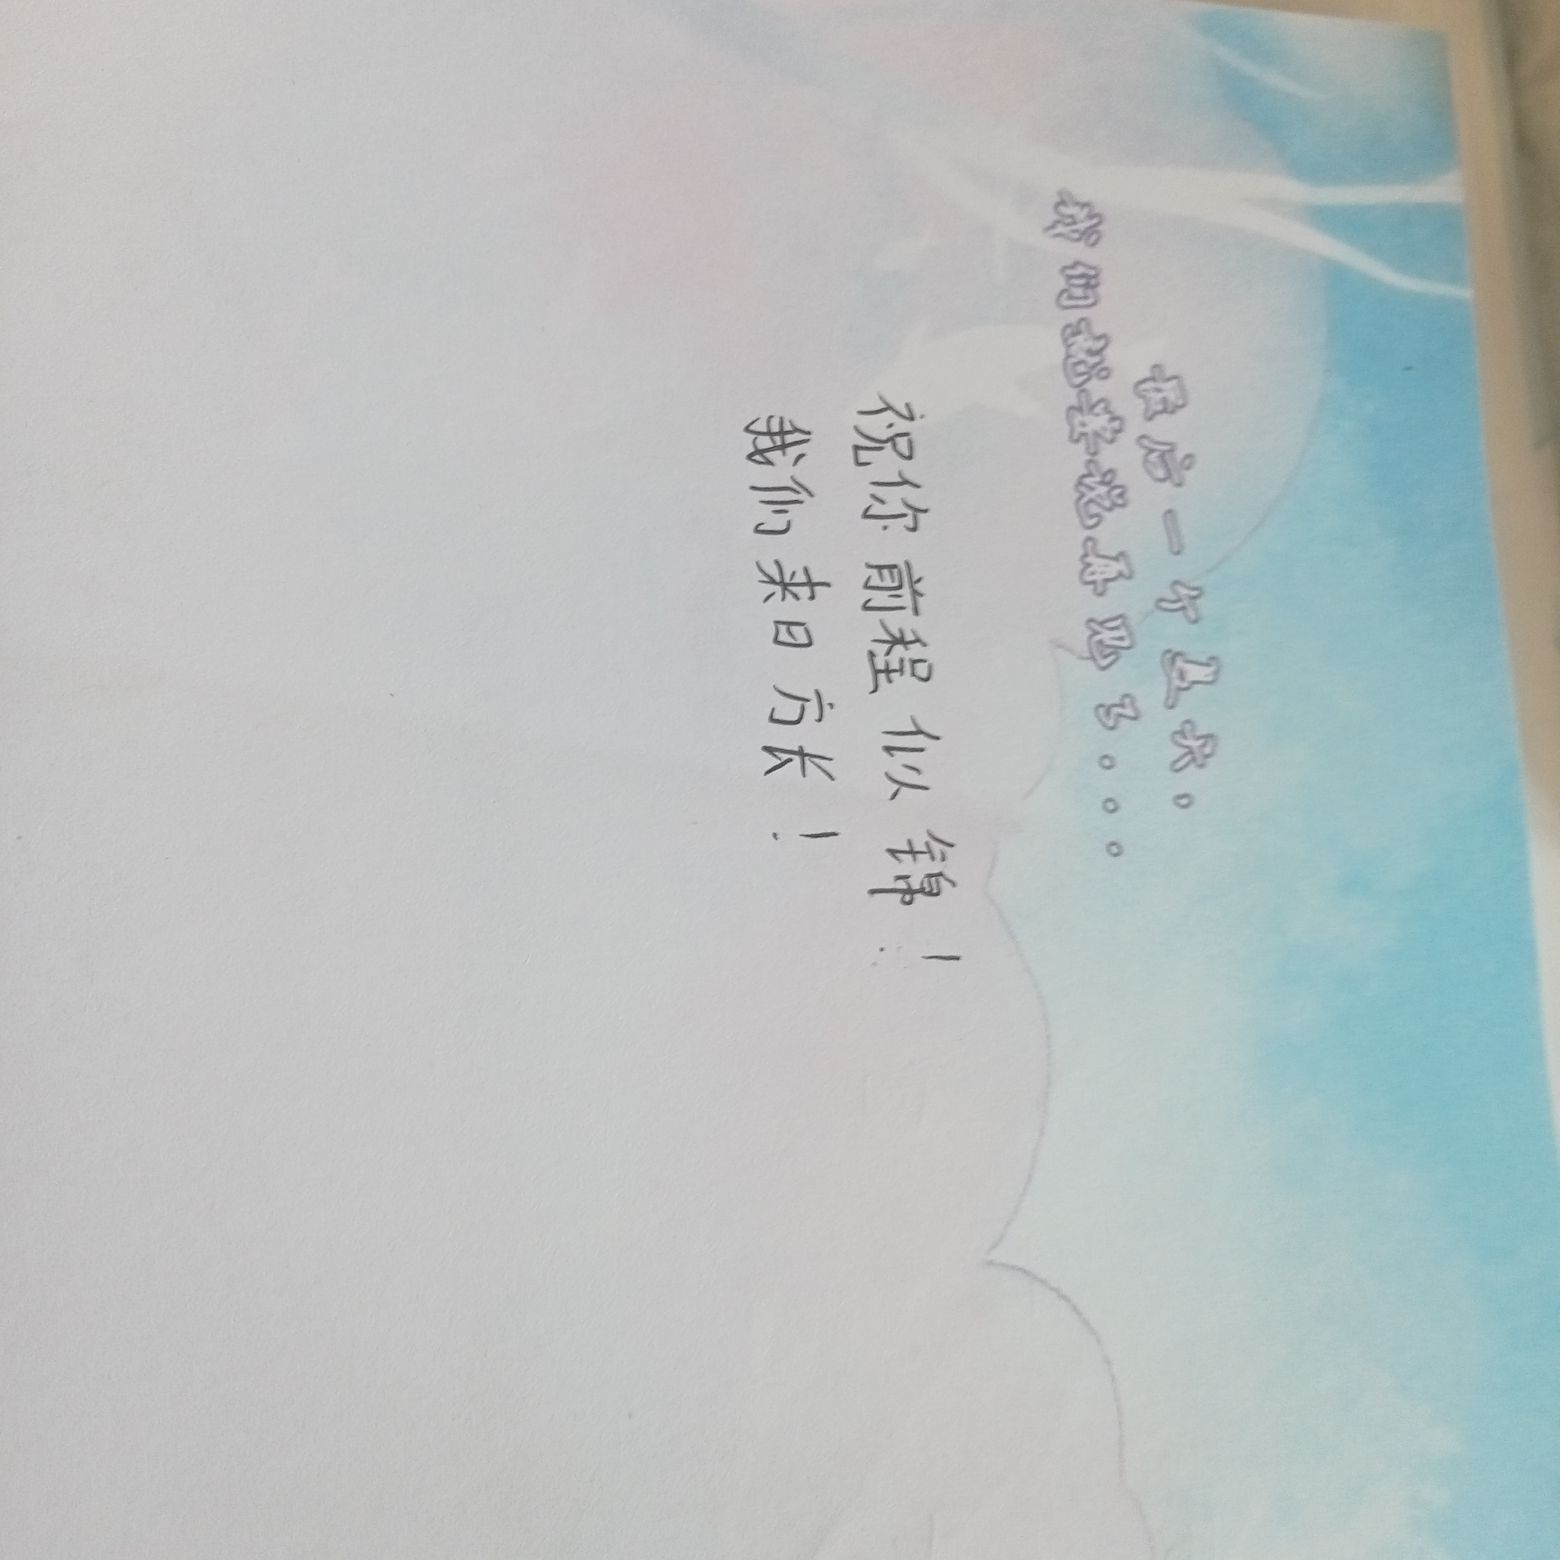 最后一个夏天。
我们就要说再见了。。。
祝你前程似锦！
我们来日方长！